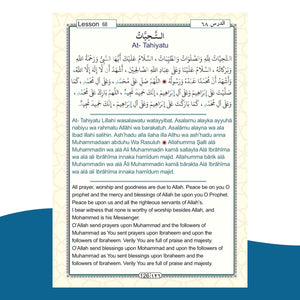 Lesson 68 الدرس ٦٨
التَّحِيَّاتُ
At- Tahiyatu
التَّحِيَّاتُ لِلَّهِ وَالصَّلَوَاتُ وَالطَّيِّبَاتُ ، السَّلَامُ عَلَيْكَ أَيُّهَا النَّبِيُّ وَرَحْمَةُ اللَّهِ
وَبَرَكَاتُهُ ، السَّلَامُ عَلَيْنَا وَعَلَى عِبَادِ اللَّهِ الصَّالِحِينَ ، أَشْهَدُ أَنْ لَا إِلَهَ إِلَّا اللَّهُ،
At- Tahiyatu Lillahi wasalawatu watayyibat. Asalamu alayka ayyuhā
nabiyu wa rahmatu Allāhi wa barakatuh. Asalāmu alayna wa ala
Ibad Ilahi salihin. Ash'hadu alla ilaha illa Allhu wa ash'hadu anna
Muhammadaan abduhu Wa Rasuluh Allahumma Şalli alā
Muhammadin wa alā Āli Muhammadin kamā sallayta Alā Ibrāhīma
wa alā ali Ibrāhīma innaka hamīdum majid. Allahumma bārik alā
Muhammadin wa alā Āli Muhammadin kamā bārakta Alā Ibrāhīma
wa alā ali Ibrāhīma innaka hamīdum majid.
All prayer, worship and goodness are due to Allah. Peace be on you O
prophet and the mercy and blessings of Allah be upon you O Prophet.
Peace be upon us and all the righteous servants of Allah's.
I bear witness that none is worthy of worship besides Allah, and
Mohammed is his Messenger.
O'Allah send prayers upon Muhammad and the followers of
Muhammad as You sent prayers upon Ibraheem and upon the
followers of Ibraheem. Verily You are full of praise and majesty.
O Allah send blessings upon Muhammad and upon the followers of
Muhammad as You sent blessings upon Ibraheem and upon the
followers of Ibraheem. Verily You are full of praise and majesty.
126 ١٢٦